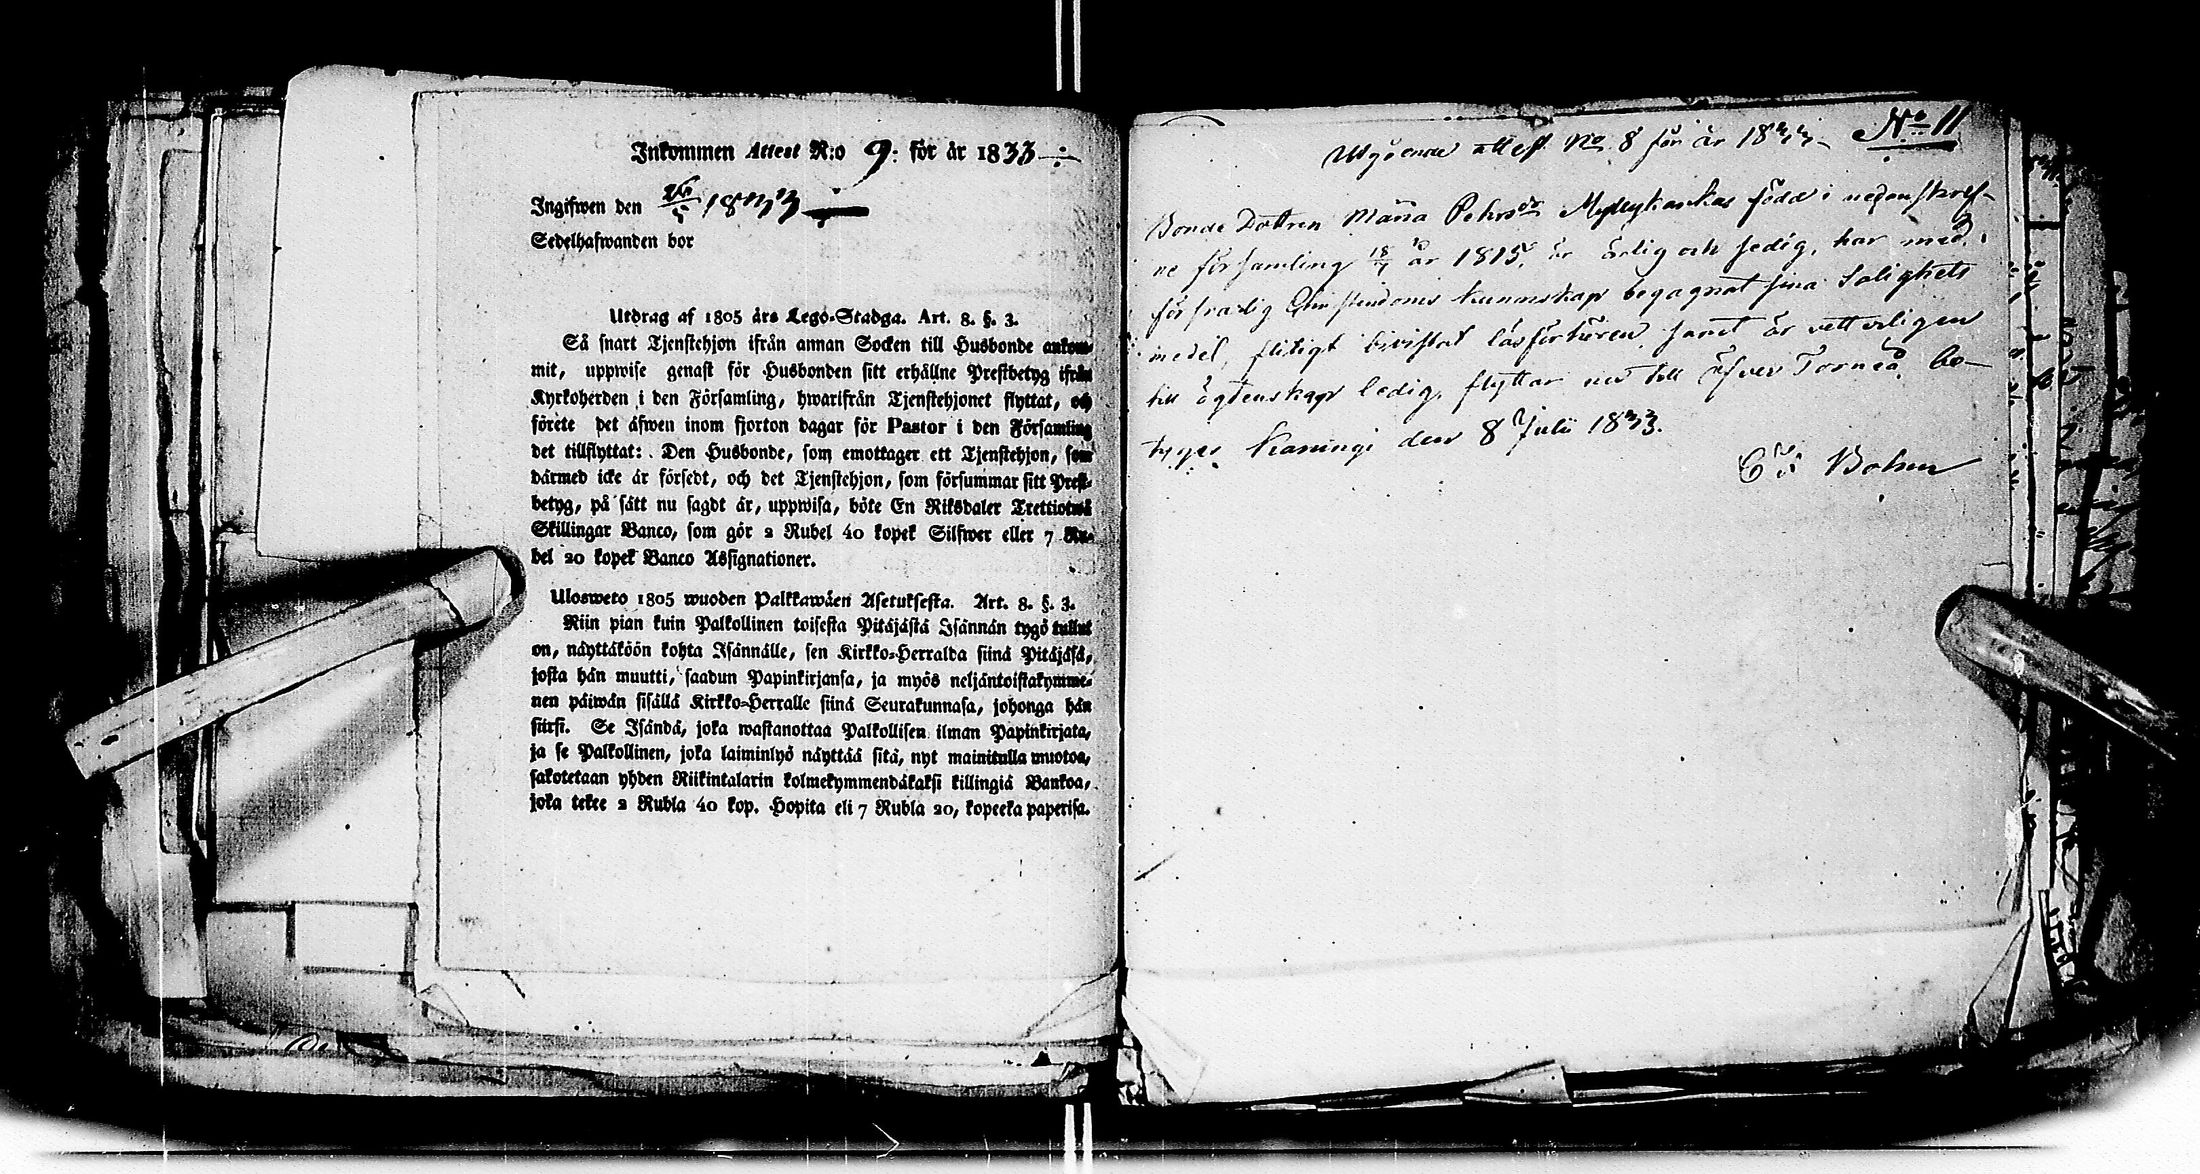 Inkommen Attest N:o 9: för år 1833
Ingifwen den 26/5 1833
Sedelhafwanden bor
Utdrag af 1805 års Lego-Stadga. Art. 8. §. 3.
Så snart Tjenstehjon ifrån annan Socken till Husbonde ankom-
mit, uppwise genast för Husbonden sitt erhållne Prestbetyg ifrån
Kyrkoherden i den Församling, hwarifrån Tjenstehjonet flyttat, och
förete det äfwen inom fjorton dagar för Pastor i den Församling
det tillflyttat: Den Husbonde, som emottager ett Tjenstehjon, som
därmed icke är försedt, och det Tjenstehjon, som försummar sitt Prest-
betyg, på sätt nu sagdt är, uppwisa, böte En Riksdaler Trettiotwå
Skillingar Banco, som gör 2 Rubel 40 kopek Silfwer eller 7 Ru-
bel 20 kopek Banco Assignationer.
Ulosweto 1805 wuoden Palkkawäen Asetuksesta. Art. 8. §. 3.
Niin pian kuin Palkollinen toisesta Pitäjästä Isännän tygö tullut
on, näyttäköön kohta Isännälle, sen Kirkko-Herralda siinä Pitäjäsä,
josta hän muutti, saadun Papinkirjansa, ja myös neljäntoistakymme-
nen päiwän sisällä Kirkko-Herralle siinä Seurakunnasa, johonga hän
siirsi. Se Isändä, joka wastanottaa Palkollisen ilman Papinkirjata,
ja se Palkollinen, joka laiminlyö näyttää sitä, nyt mainitulla muotoa,
sakotetaan yhden Riikintalarin kolmekymmendäkaksi killingiä Bankoa,
joka tekee 2 Rubla 40 kop. Hopita eli 7 Rubla 20, kopeeka paperisa.
Utgående attest No 8 för år 1833 No 11
Bonde Dottren Maria Pehrsdr född i nedanskref-
ne församling 18/7 år 1815, är ärlig och sedig, har med
försvarlig Christendoms kunnskap begagnat sina Salighets
medel, flitigt bivistat läsförhören samt är vetterligen
till ägtenskap ledig, flyttar nu till Öfver Torneå, be-
tygas Karungi den 8 Julii 1833.
Bohm